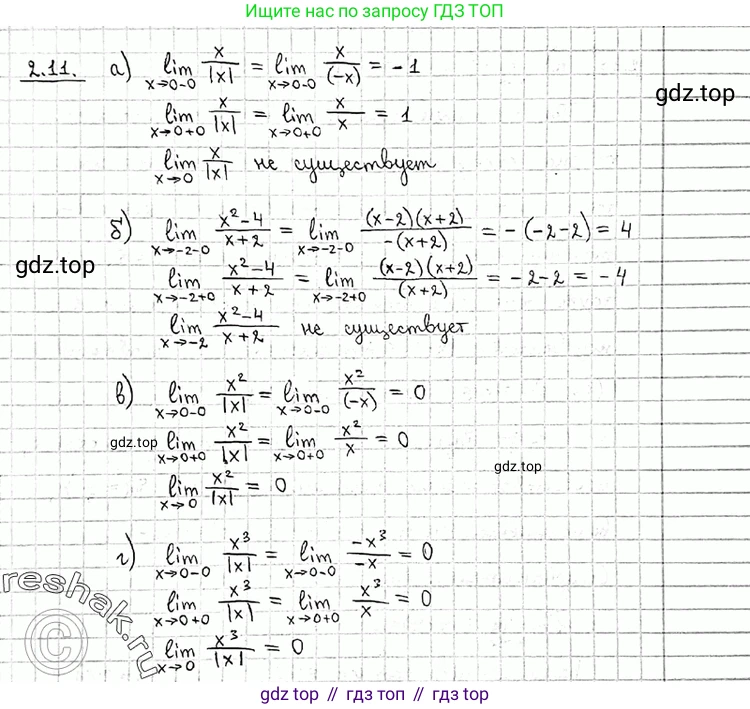 Ищите нас по запросу ГДЗ ТОП
2.11. а) lim x→0-0 x/|x| = lim x→0-0 x/(-x) = -1
gdz.top
lim x→0+0 x/|x| = lim x→0+0 x/x = 1
lim x→0 x/|x| не существует
б) lim x→-2-0 (x²-4)/(x+2) = lim x→-2-0 (x-2)(x+2)/-(x+2) = -(-2-2) = 4
gdz.top
lim x→-2+0 (x²-4)/(x+2) = lim x→-2+0 (x-2)(x+2)/(x+2) = -2-2 = -4
lim x→-2 (x²-4)/(x+2) не существует
в) lim x→0-0 x²/|x| = lim x→0-0 x²/(-x) = 0
gdz.top
lim x→0+0 x²/|x| = lim x→0+0 x²/x = 0
gdz.top
lim x→0 x²/|x| = 0
г) lim x→0-0 x³/|x| = lim x→0-0 -x³/-x = 0
lim x→0+0 x³/|x| = lim x→0+0 x³/x = 0
lim x→0 x³/|x| = 0
reshak.ru
©
gdz top // гдз топ // gdz.top